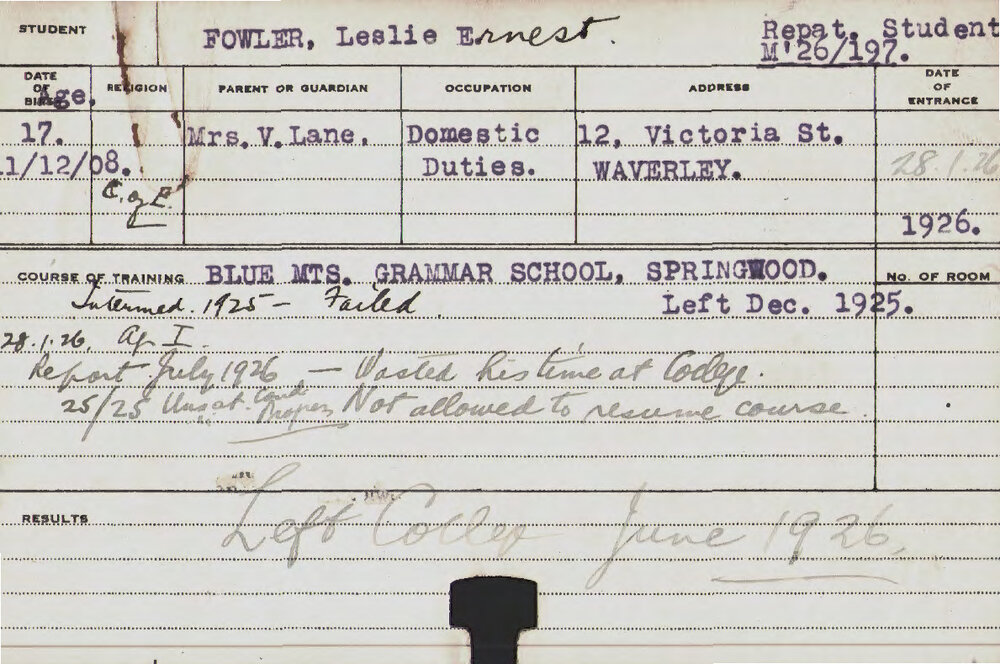 STUDENT FOWLER, Leslie Ernest. Repat. Student
M'26/197.
DATE OF BIRTH Age. RELIGION PARENT OR GUARDIAN OCCUPATION ADDRESS DATE OF ENTRANCE
17. Mrs. V. Lane. Domestic 12, Victoria St.
11/12/08. Duties. WAVERLEY. 28.1.26
C. of E.
1926.
COURSE OF TRAINING BLUE MTS. GRAMMAR SCHOOL, SPRINGWOOD. NO. OF ROOM
Intermed. 1925 - Failed. Left Dec. 1925.
28.1.26. Ag. I.
Report July 1926 — Wasted his time at Collge.
25/25 Unsat. Cond. Not allowed to resume course.
" Progress
RESULTS Left College June 1926.